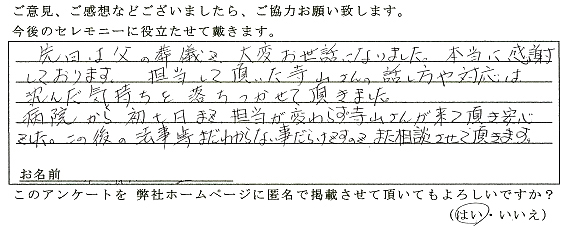 ご意見、ご感想などございましたら、ご協力お願い致します。
今後のセレモニーに役立たせて戴きます。
先日は父の葬儀で大変お世話になりました。本当に感謝
しております。担当して頂いた寺山さんの話し方や対応は
沈んだ気持ちを落ちつかせて頂きました。
病院から初七日まで担当が変わらず寺山さんが来て頂き安心
でした。この後の法事等まだわからない事だらけですのでまた相談させて頂きます。
お名前
このアンケートを 弊社ホームページに匿名で掲載させて頂いてもよろしいですか?
(はい・いいえ)